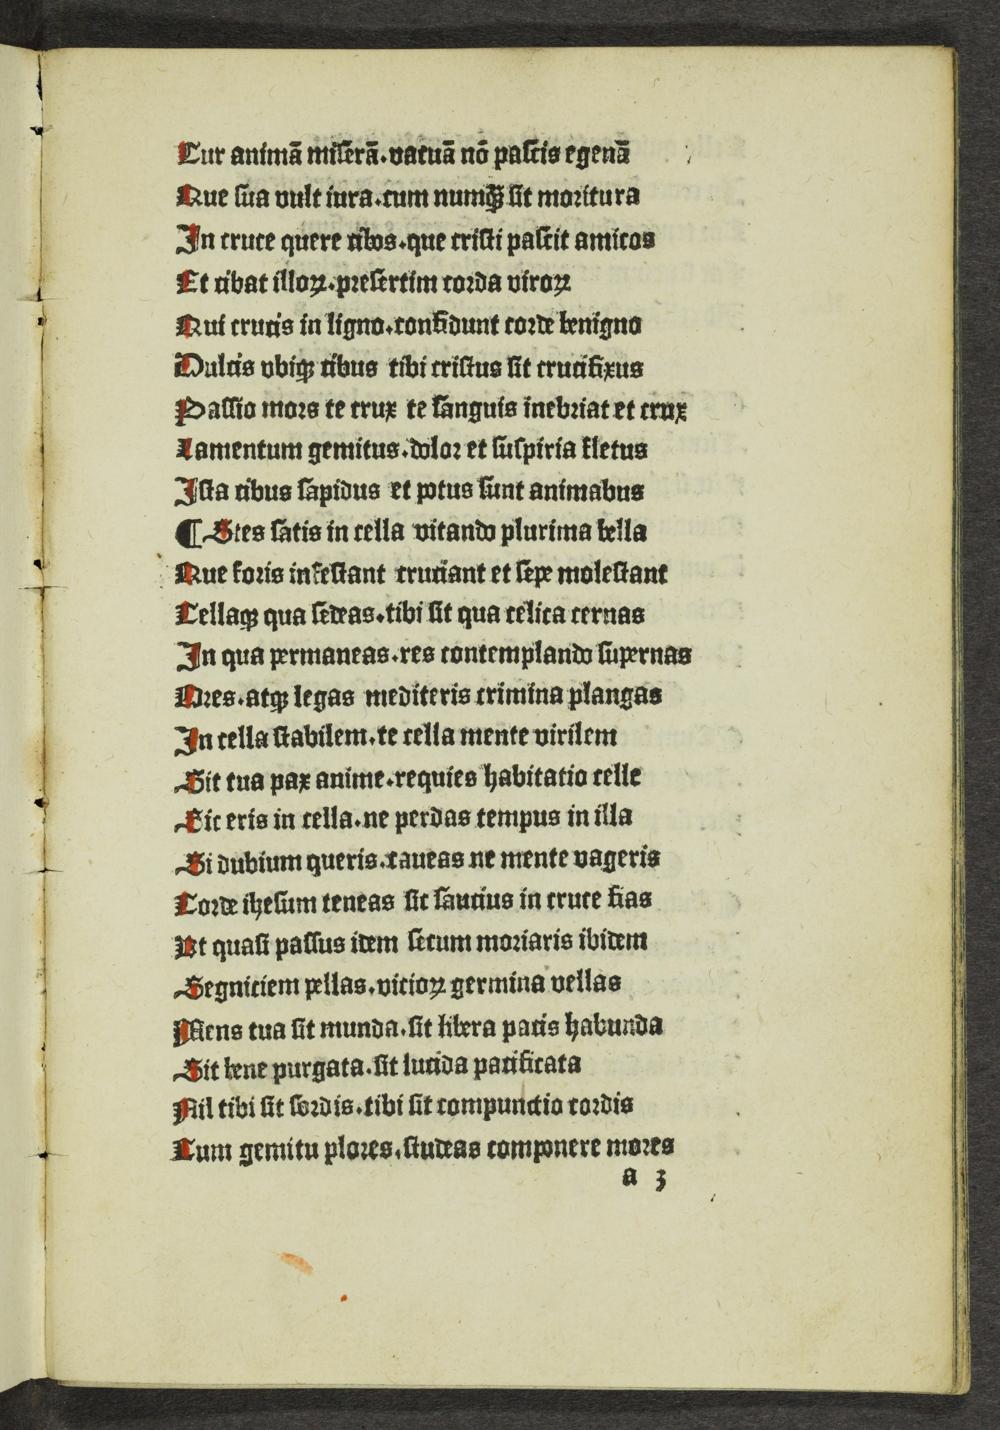 Cur animā miserā.vacuā nō pascis egenā
Que sua vult iura.cum numqȝ sit moritura
In cruce quere cibos.que cristi pascit amicos
Et cibat illoꝝ.presertim corda viroꝝ
Qui crucis in ligno.confidunt corde benigno
Dulcis vbiqȝ cibus tibi cristus sit crucifixus
Passio mors te crux te sanguis inebriat et crux
Lamentum gemitus.dolor et suspiria fletus
Ista cibus sapidus et potus sunt animabus
¶ Stes satis in cella vitando plurima bella
Que foris infestant cruciant et sepe molestant
Cellaqȝ qua sedeas.tibi sit qua celica cernas
In qua permaneas.res contemplando supernas
Ores.atqȝ legas mediteris crimina plangas
In cella stabilem.te cella mente virilem
Sit tua pax anime.requies habitatio celle
Sic eris in cella.ne perdas tempus in illa
Si dubium queris.caueas ne mente vageris
Corde ihesum teneas sit saucius in cruce fias
Vt quasi passus idem secum moriaris ibidem
Segniciem pellas.vicioꝝ germina vellas
Mens tua sit munda.sit libera pacis habunda
Sit bene purgata.sit lucida pacificata
Nil tibi sit sordis.tibi sit compunctio cordis
Cum gemitu plores.studeas componere mores
a 3